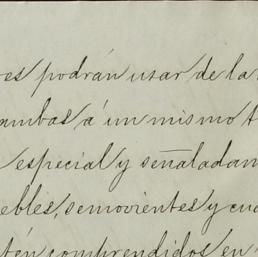 es podrán usar de la
ambas á un mismo t
especial y señaladam
ebles, semovientes y cua
tén comprendidos en